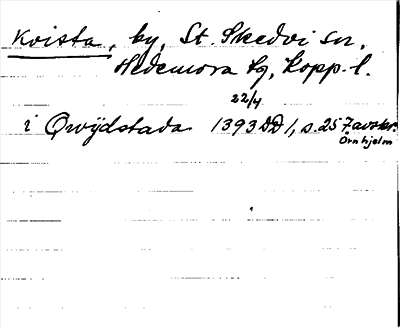 Kvista, by, St Skedvi sn,
Hedemora tg, Kopp. l.
22/4
i Qwijdstada 1393 DD 1, s. 257 avskr.
Örnhjelm